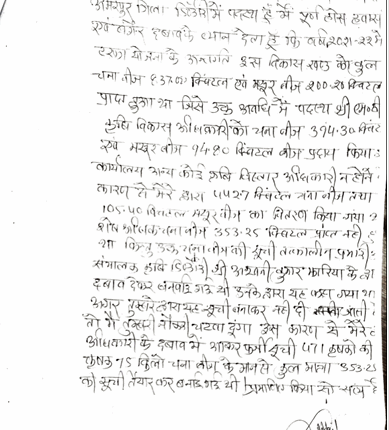 अमरपुर जिला डिंडौरी में पदस्थ हूँ मैं पूर्ण होश हवास
एवं बगैर दबाव के ब्यान देता हूँ कि वर्ष 2021-22 में
योजना के अन्तर्गत इस विकास खण्ड को कुल
चना बीज क्विंटल एवं मसूर बीज 200.20 क्विंटल
प्राप्त हुआ था जिसे उक्त अवधि में पदस्थ श्री
कृषि विकास अधिकारी को चना बीज 374.30
एवं मसूर बीज 94.80 क्विंटल बीज प्रदाय किया
कार्यालय अन्य कोई कृषि विस्तार अधिकारी न होने
कारण से मेरे द्वारा क्विंटल चना बीज तथा
105.40 क्विंटल मसूर बीज का वितरण किया गया
शेष चना बीज 353.25 क्विंटल प्राप्त नहीं
था किन्तु उक्त चना बीज की सूची तत्कालीन प्रभारी
संचालक कृषि डिंडौरी श्री अश्वनी कुमार झारिया के
दबाव देकर बनवाई गई थी उनके द्वारा यह कहा गया था
अगर तुम्हारे द्वारा यह सूची बनाकर नहीं दी जाती
तो मैं तुम्हारी नौकरी दूंगा उस कारण से मैंने
अधिकारी के दबाव में आकर फर्जी सूची 471 कृषकों की
कृषक 75 किलो चना बीज के मान से कुल मात्रा 353.25
की सूची तैयार कर बनाई गई थी प्रमाणित किया